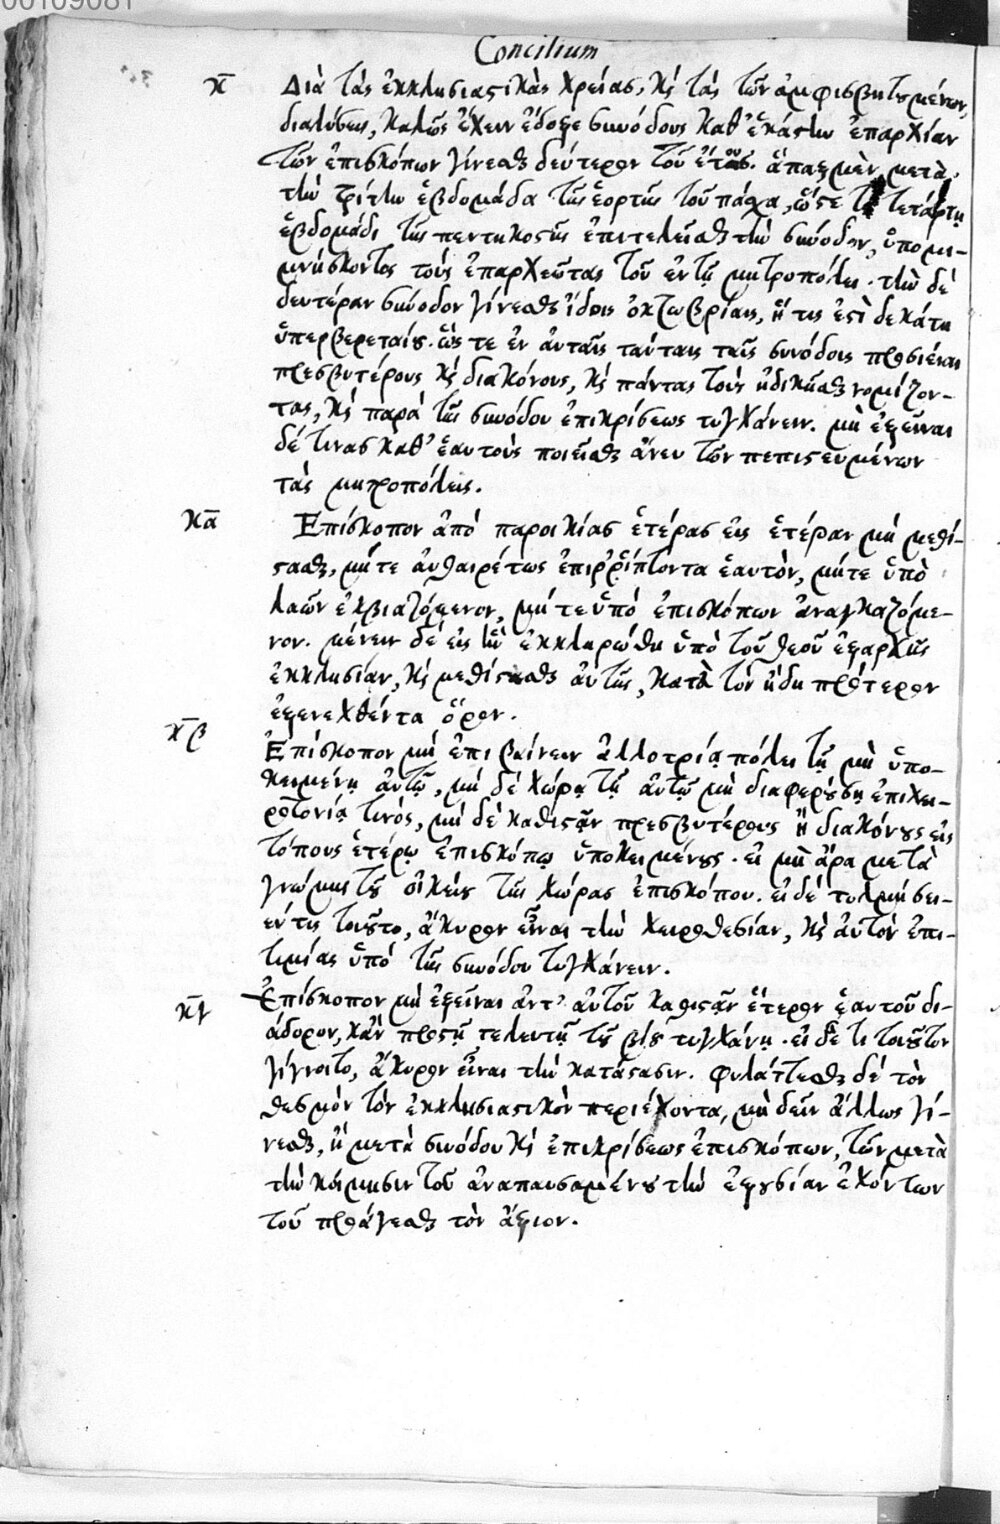 00109081
Concilium
κ̅ Διὰ τὰς ἐκκλησιαστικὰς χρείας, καὶ τὰς τῶν ἀμφισβητουμένων
διαλύσεις, καλῶς ἔχειν ἔδοξε συνόδους καθ' ἑκάστην ἐπαρχίαν
τῶν ἐπισκόπων γίνεσθαι δεύτερον τοῦ ἔτους. ἅπαξ μὲν μετὰ
τὴν τρίτην ἑβδομάδα τῆς ἑορτῆς τοῦ πάσχα, ὥστε τῇ τετάρτῃ
ἑβδομάδι τῆς πεντηκοστῆς ἐπιτελεῖσθαι τὴν σύνοδον, ὑπομι-
μνήσκοντος τοὺς ἐπαρχεώτας τοῦ ἐν τῇ μητροπόλει. τὴν δὲ
δευτέραν σύνοδον γίνεσθαι ἰδοῖς ὀκτωβρίαις, ἥ τις ἐστὶ δεκάτη
ὑπερβερεταίου. ὥς τε ἐν αὐταῖς ταύταις ταῖς συνόδοις προσιέναι
πρεσβυτέρους καὶ διακόνους, καὶ πάντας τοὺς ἠδικῆσθαι νομίζον-
τας, καὶ παρὰ τῆς συνόδου ἐπικρίσεως τυγχάνειν. μὴ ἐξεῖναι
δέ τινας καθ' ἑαυτοὺς ποιεῖσθαι ἄνευ τῶν πεπιστευμένων
τὰς μητροπόλεις.
κα̅ Ἐπίσκοπον ἀπὸ παροικίας ἑτέρας εἰς ἑτέραν μὴ μεθί-
στασθαι, μήτε αὐθαιρέτως ἐπιρρίπτοντα ἑαυτὸν, μήτε ὑπὸ
λαῶν ἐκβιαζόμενον, μήτε ὑπὸ ἐπισκόπων ἀναγκαζόμε-
νον. μένειν δὲ εἰς ἣν ἐκκληρώθη ὑπὸ τοῦ θεοῦ ἐξαρχῆς
ἐκκλησίαν, καὶ μεθίστασθαι αὐτῆς, κατὰ τὸν ἤδη πρότερον
ἐξενεχθέντα ὅρον.
κ̅β Ἐπίσκοπον μὴ ἐπιβαίνειν ἀλλοτρίᾳ πόλει τῇ μὴ ὑπο-
κειμένῃ αὐτῷ, μὴ δὲ χώρᾳ τῇ αὐτῷ μὴ διαφερούσῃ ἐπὶ χει-
ροτονίᾳ τινὸς, μὴ δὲ καθιστᾷν πρεσβυτέρους ἢ διακόνους εἰς
τόπους ἑτέρῳ ἐπισκόπῳ ὑποκειμένους. εἰ μὴ ἄρα μετὰ
γνώμης τοῦ οἰκείου τῆς χώρας ἐπισκόπου. εἰ δὲ τολμήσει-
έν τις τοιοῦτο, ἄκυρον εἶναι τὴν χειροθεσίαν, καὶ αὐτὸν ἐπι-
τιμίας ὑπὸ τῆς συνόδου τυγχάνειν.
κ̅γ Ἐπίσκοπον μὴ ἐξεῖναι ἀντ' αὐτοῦ καθιστᾷν ἕτερον ἑαυτοῦ δι-
άδοχον, κἂν πρὸς τῇ τελευτῇ τοῦ βίου τυγχάνῃ. εἰ δέ τι τοιοῦτον
γίγνοιτο, ἄκυρον εἶναι τὴν κατάστασιν. φυλάττεσθαι δὲ τὸν
θεσμὸν τὸν ἐκκλησιαστικὸν περιέχοντα, μὴ δεῖν ἄλλως γί-
νεσθαι, ἢ μετὰ συνόδου καὶ ἐπικρίσεως ἐπισκόπων, τῶν μετὰ
τὴν κοίμησιν τοῦ ἀναπαυσαμένου τὴν ἐξουσίαν ἐχόντων
τοῦ προάγεσθαι τὸν ἄξιον.